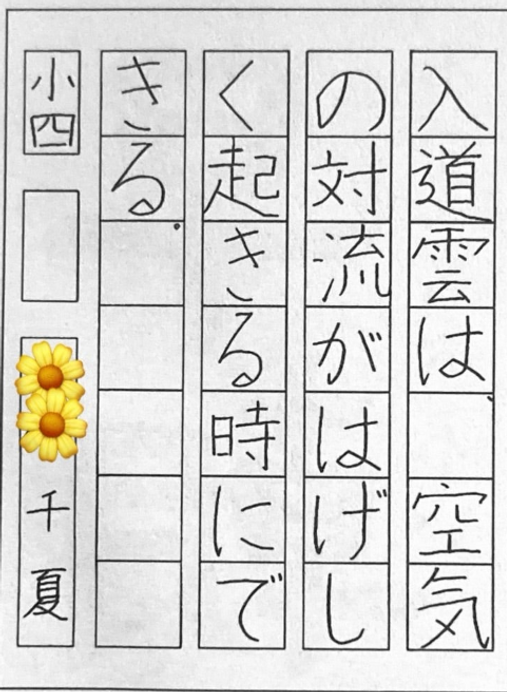 入道雲は、空気
の対流がはげし
く起きる時にで
きる。
小四
千夏